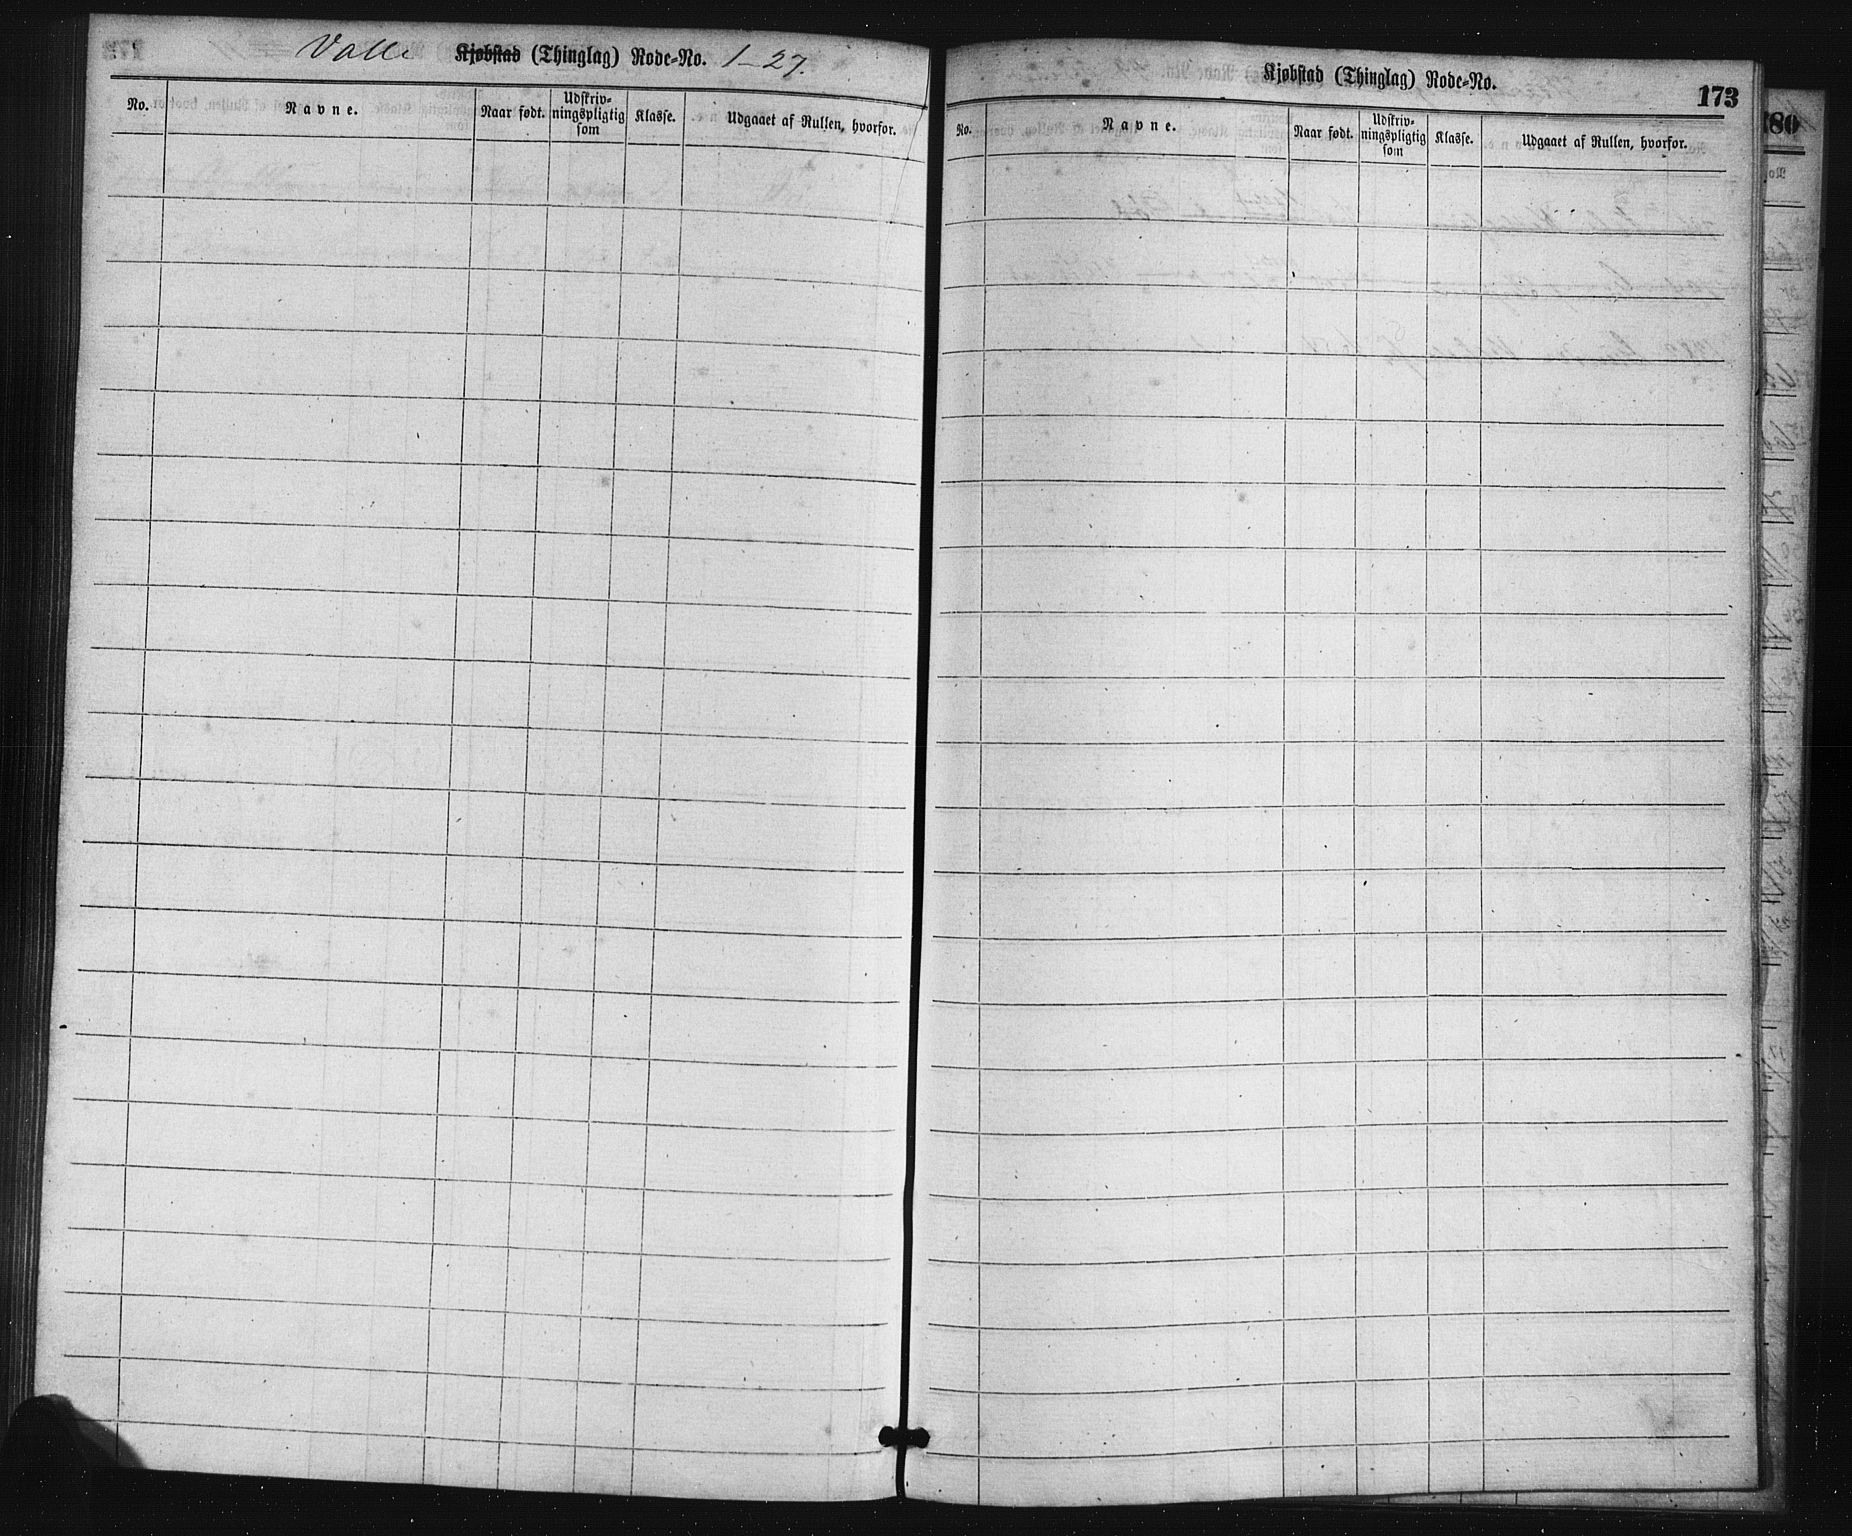 Valle Kjøbstad (Thinglag) Rode-No. 1–27.
No. Navne. Naar født. Udskriv-
ningspligtig
som Klasse. Udgaaet af Rullen, hvorfor.
Kjøbstad (Thinglag) Rode-No.
173
No. Navne. Naar født. Udskriv-
ningspligtig
som Klasse. Udgaaet af Rullen, hvorfor.
80